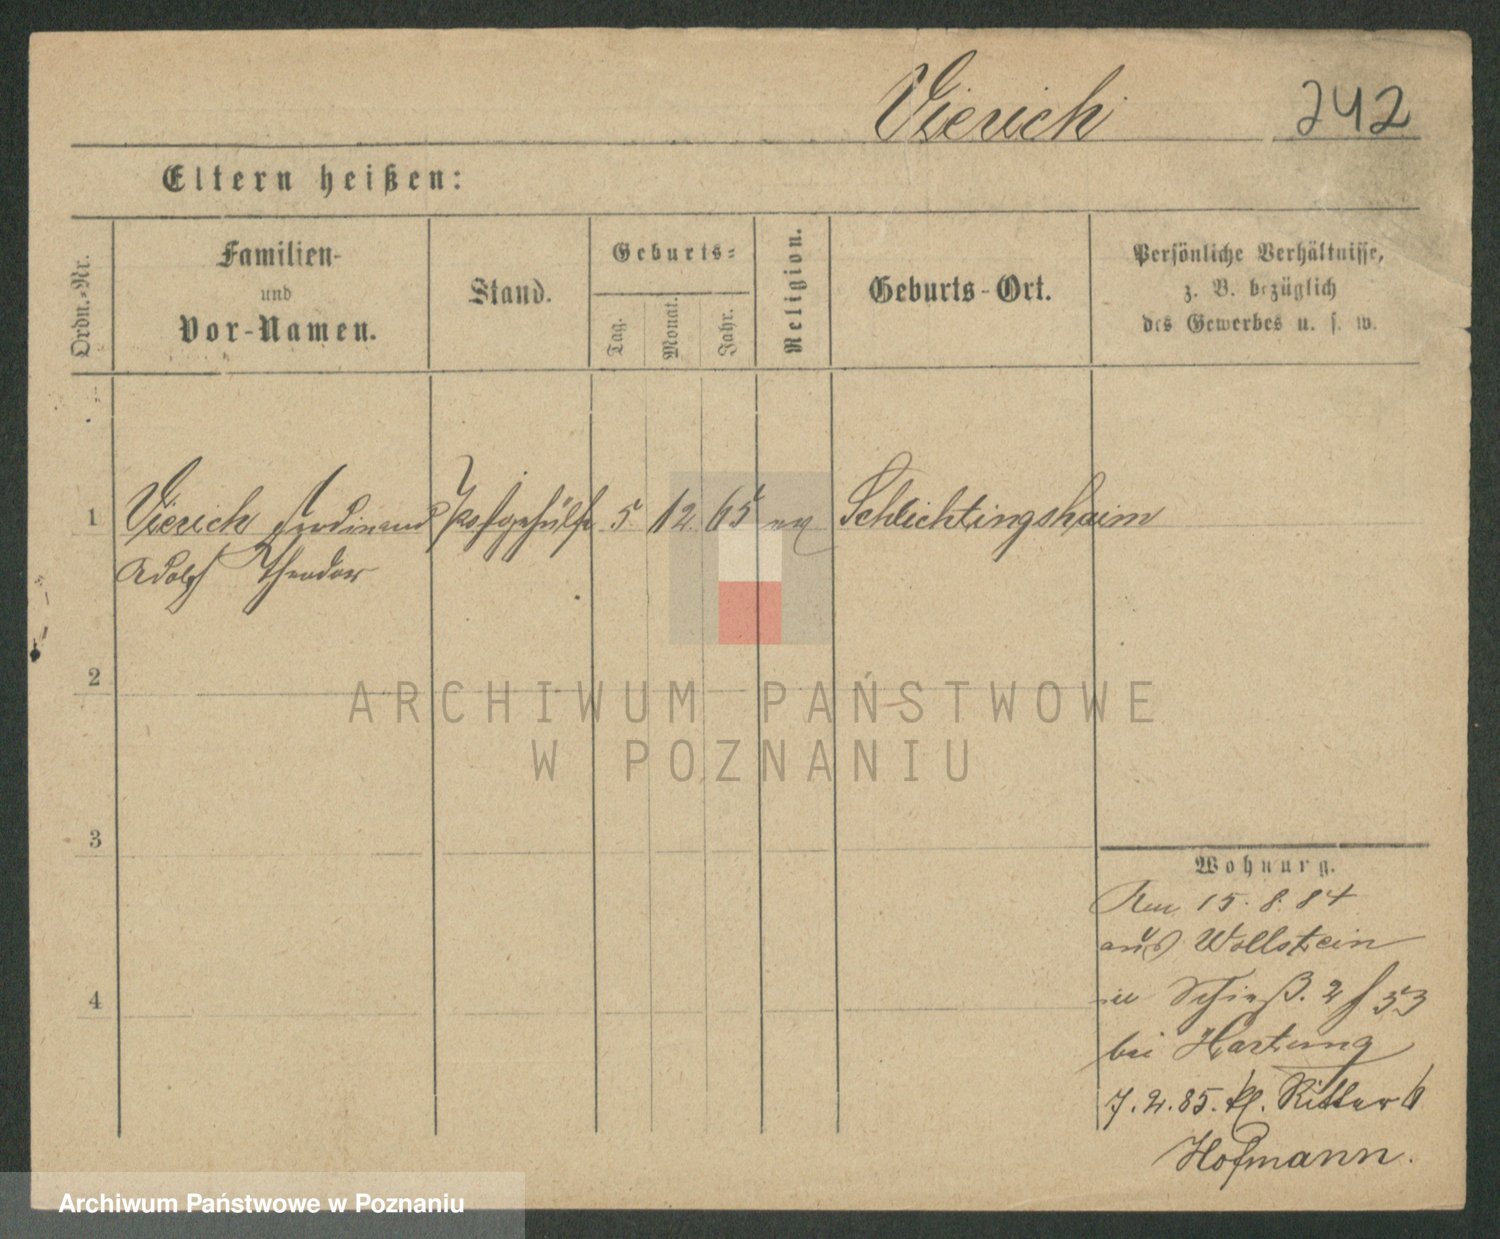 Vierich 242
Eltern heißen:
Ordn.-Nr.
Familien-
und
Vor-Namen.
Stand.
Geburts-
Tag.
Monat.
Jahr.
Religion.
Geburts-Ort.
Persönliche Verhältnisse,
z. B. bezüglich
des Gewerbes u. s. w.
1 Vierich Ferdinand Postgehülfe 5 12 65 ev Schlichtingsheim
Adolf Theodor
2
3
4
Wohnung.
15. 8. 84
aus Wollstein
in Schieß. 2 53
bei Hartung
7. 2. 85. kl. Ritter 6
Hofmann.
ARCHIWUM PAŃSTWOWE
W POZNANIU
Archiwum Państwowe w Poznaniu